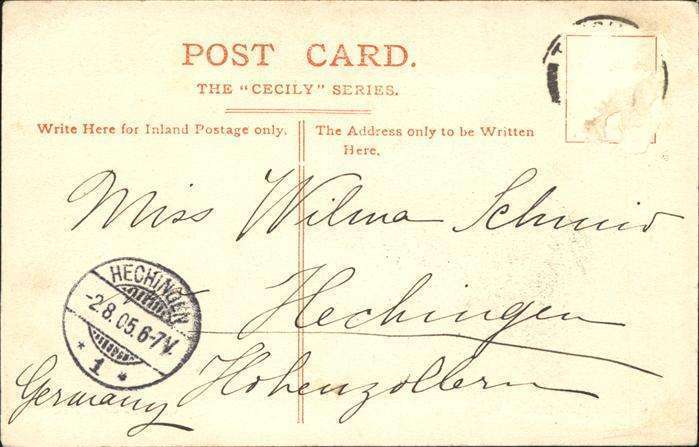 POST CARD.
THE "CECILY" SERIES.
Write Here for Inland Postage only.
The Address only to be Written
Here.
Miss Wilma Schmid
Hechingen
Hohenzollern
Germany
HECHINGEN
-2.8.05.6-7V.
* 1 *